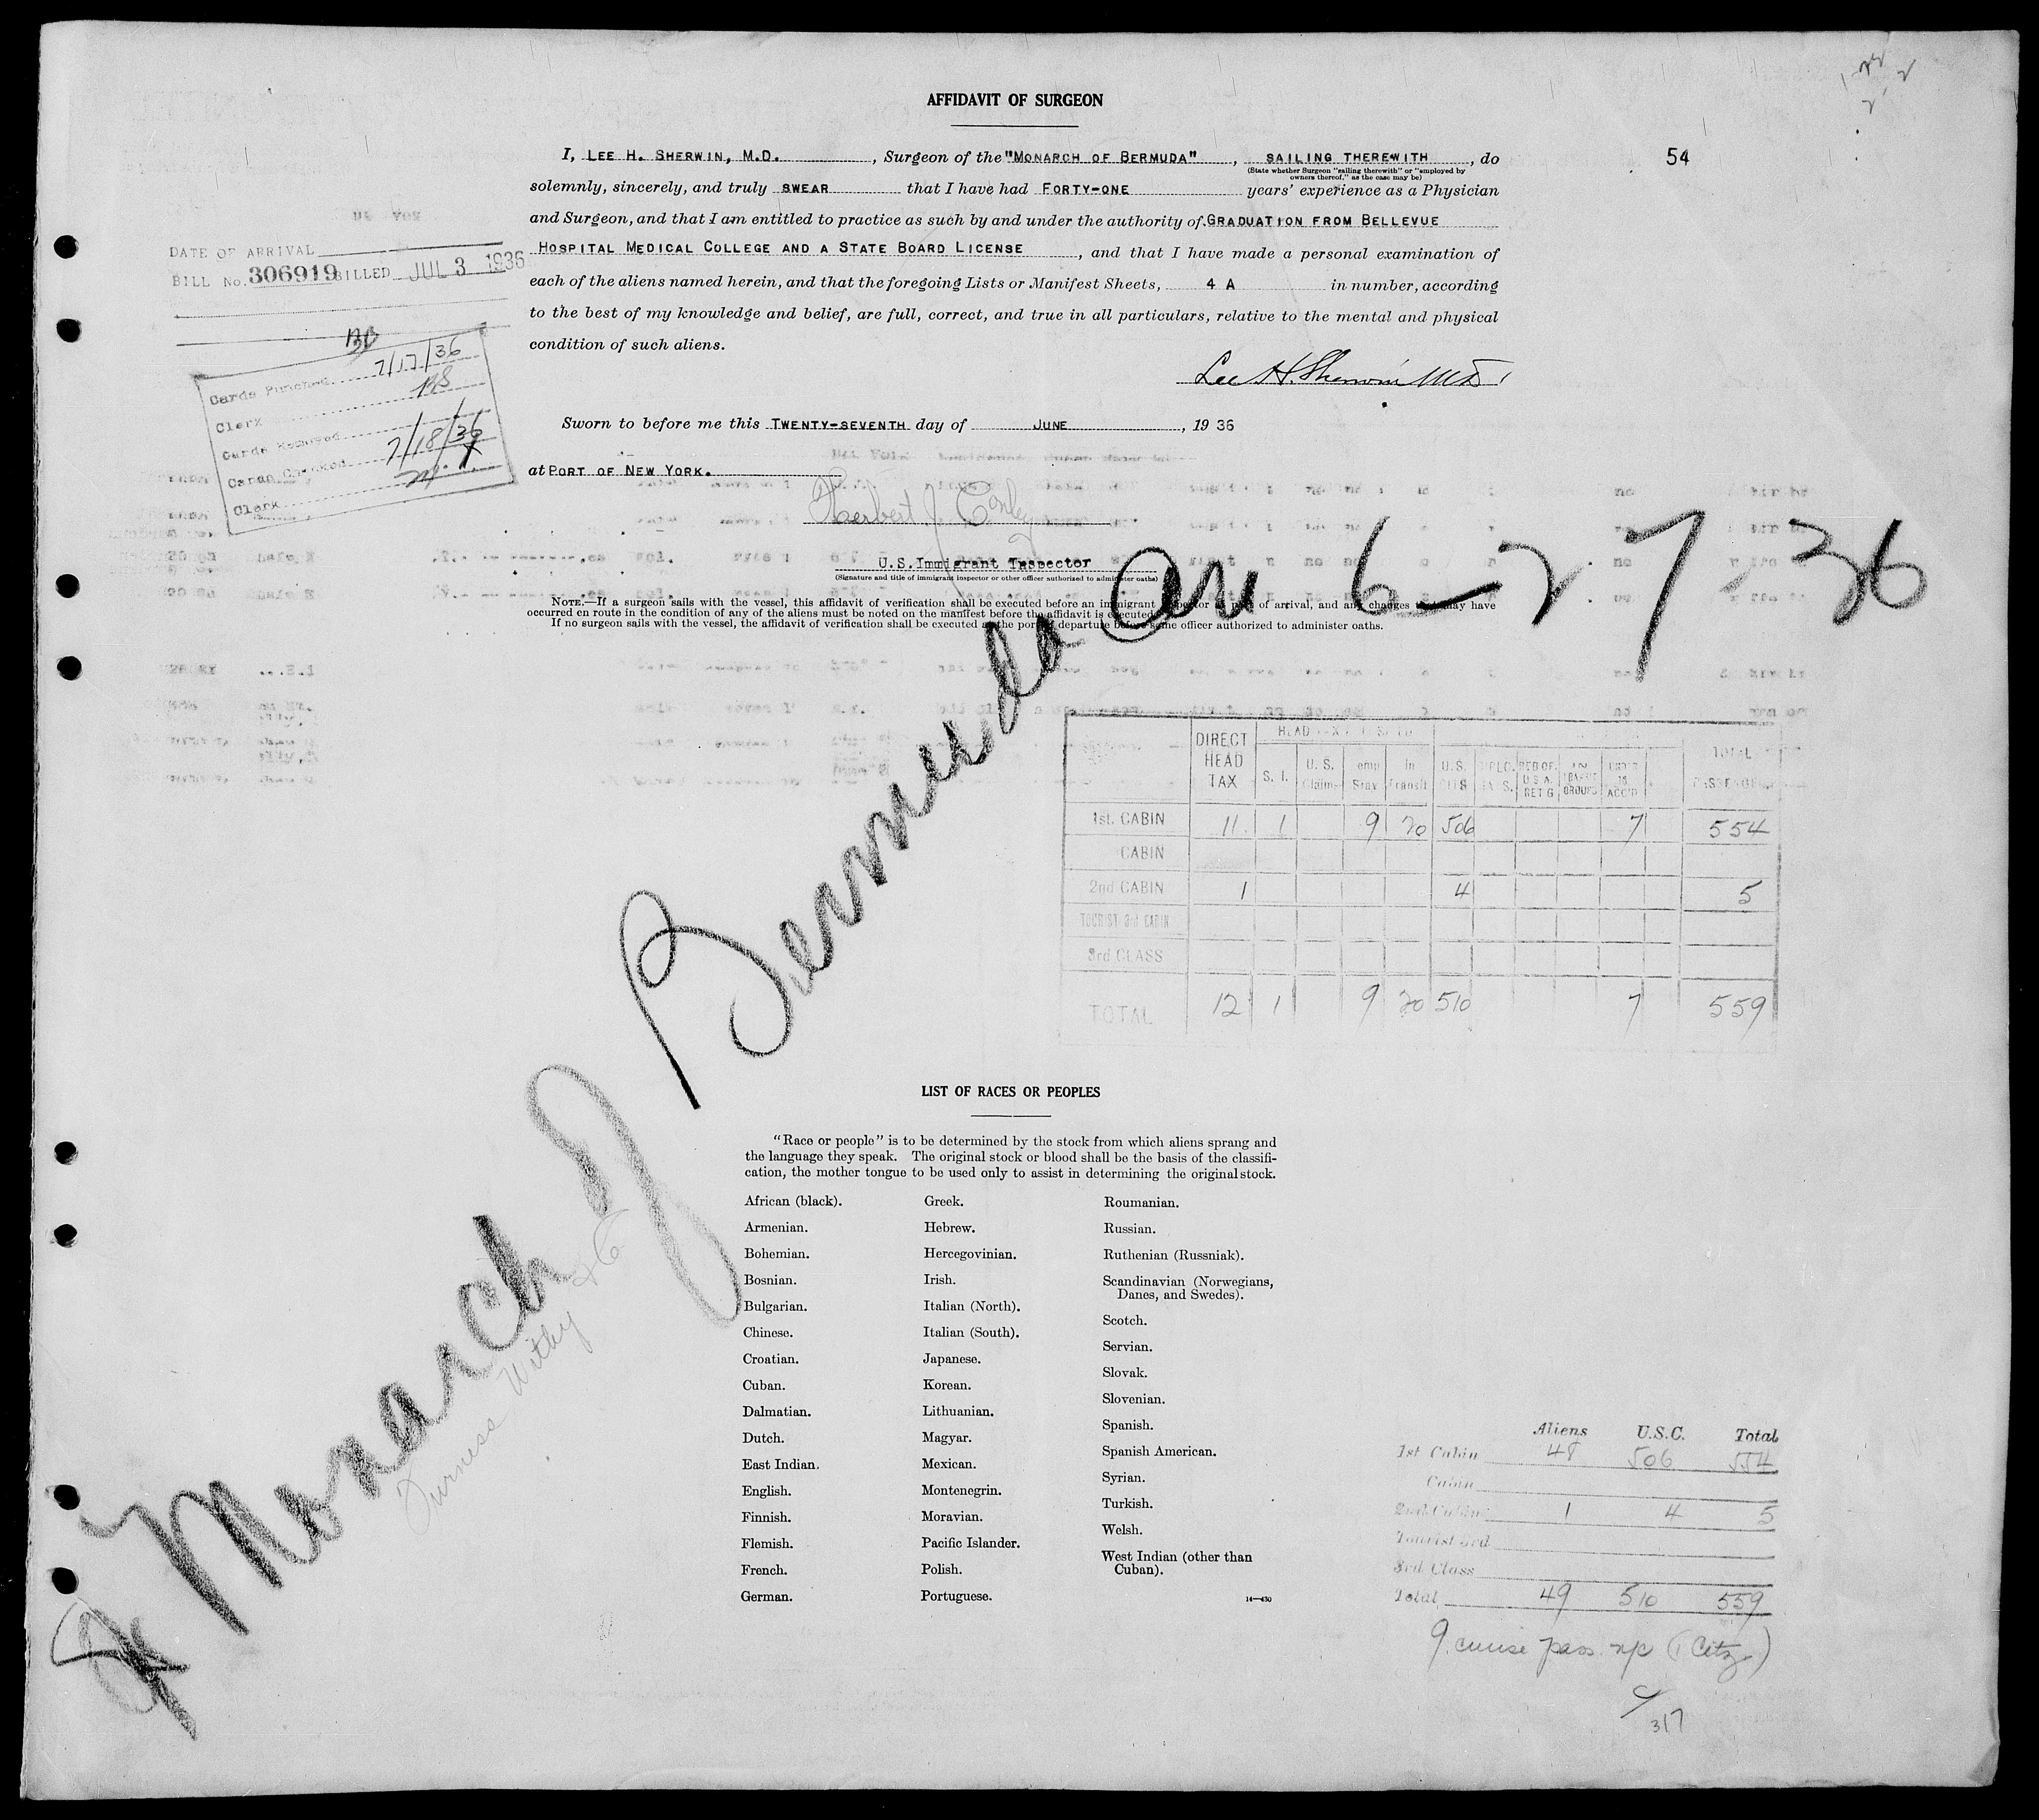 AFFIDAVIT OF SURGEON
54
I, LEE H. SHERWIN, M.D. , Surgeon of the "MONARCH OF BERMUDA" , SAILING THEREWITH , do
(State whether Surgeon "sailing therewith" or "employed by
owners thereof," as the case may be)
solemnly, sincerely, and truly SWEAR that I have had FORTY-ONE years' experience as a Physician
and Surgeon, and that I am entitled to practice as such by and under the authority of GRADUATION FROM BELLEVUE
HOSPITAL MEDICAL COLLEGE AND A STATE BOARD LICENSE , and that I have made a personal examination of
each of the aliens named herein, and that the foregoing Lists or Manifest Sheets, 4 A in number, according
to the best of my knowledge and belief, are full, correct, and true in all particulars, relative to the mental and physical
condition of such aliens.
Lee H. Sherwin M.D.
Sworn to before me this TWENTY-SEVENTH day of JUNE , 19 36
at PORT OF NEW YORK.
Herbert J Conley
U.S. Immigrant Inspector
(Signature and title of immigrant inspector or other officer authorized to administer oaths)
NOTE.—If a surgeon sails with the vessel, this affidavit of verification shall be executed before an immigrant inspector at port of arrival, and any changes that may have
occurred en route in the condition of any of the aliens must be noted on the manifest before the affidavit is executed.
If no surgeon sails with the vessel, the affidavit of verification shall be executed at the port of departure before some officer authorized to administer oaths.
DATE OF ARRIVAL
BILL No. 306919 BILLED JUL 3 1936
Cards Punched 7/17/36
Clerk
Cards Removed
Canan Checked 7/18/36
Clerk
Monarch of Bermuda arr 6-27-36
Furness Withy & Co
DIRECT HEAD TAX S. I. U. S. Claims Temp Stay In Transit U.S. CITS DIPLO. RES OF U.S.A. RET'G UNDER 16 ACC'D TOTAL PASSENGERS
1st. CABIN 11 1 9 20 506 7 554
CABIN
2nd CABIN 1 4 5
TOURIST 3rd CABIN
3rd CLASS
TOTAL 12 1 9 20 510 7 559
LIST OF RACES OR PEOPLES
"Race or people" is to be determined by the stock from which aliens sprang and
the language they speak. The original stock or blood shall be the basis of the classifi-
cation, the mother tongue to be used only to assist in determining the original stock.
African (black).
Armenian.
Bohemian.
Bosnian.
Bulgarian.
Chinese.
Croatian.
Cuban.
Dalmatian.
Dutch.
East Indian.
English.
Finnish.
Flemish.
French.
German.
Greek.
Hebrew.
Hercegovinian.
Irish.
Italian (North).
Italian (South).
Japanese.
Korean.
Lithuanian.
Magyar.
Mexican.
Montenegrin.
Moravian.
Pacific Islander.
Polish.
Portuguese.
Roumanian.
Russian.
Ruthenian (Russniak).
Scandinavian (Norwegians,
Danes, and Swedes).
Scotch.
Servian.
Slovak.
Slovenian.
Spanish.
Spanish American.
Syrian.
Turkish.
Welsh.
West Indian (other than
Cuban).
14—430
Aliens U.S.C. Total
1st Cabin 48 506 554
Cabin
2nd Cabin 1 4 5
Tourist 3rd
3rd Class
Total 49 510 559
9 cruise pass. n/c (1 Citz)
317